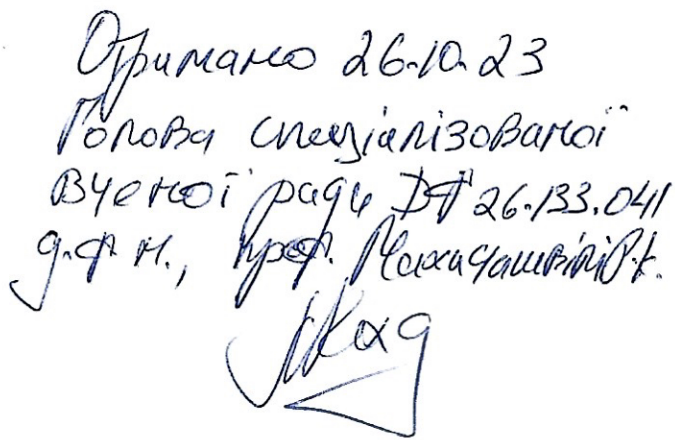 Отримано 26.10.23
Голова спеціалізованої
вченої ради ДФ 26.133.041
д.ф.н., проф. Махачашвілі Р.К.